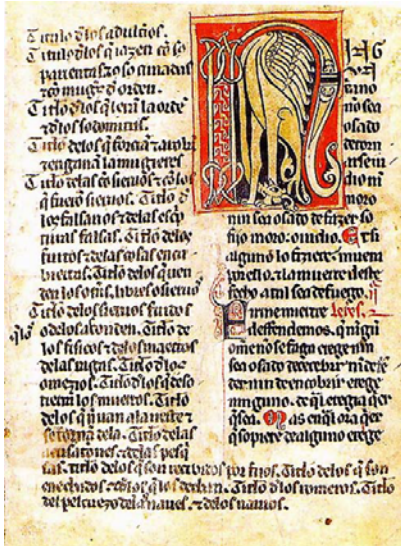 Titulo dlos adulτios.
Titulo dlos q iazen cō so
parienta o so cunnadas
τ cō mugr̄ d orden.
Titlo dlos q lexā la ordē
τ dlos sodomitas.
Titlo delos q fuerçā τ
τ engannā las mugieres
Titlo delas cō sieruos τ cō los
q fuerō sieruos. Titlo d
los falsarios τ delas esc̄p
turas falsas. Titlo delos
furtos τ delas cosas encu
biertas. Titlo delos q uen
den los otros libres sieruos
Titlo delos sieruos fuidos
q los
o delos asconden. Titlo de
los fisicos τ dlos maestros
delas lagas. Titlo dlos
omezios. Titlo dlos q deso
tierrā los muertos. Titlo
delos q nō uan ala hueste τ
se tornā dela. Titlo delas
acusationes τ delas pesq̄
sas. titlo delos q son recebidos por fijos. Titlo delos q son
enechados τ dlos q los echan. Titlo dlos romeros. Titlo
del nauēs τ delos nauios.
N
ing
un
xr̄no
nō sea
osado
de torn
arse iu
dio nī
moro
nin sea osado de fazer so
fijo moro o iudio. Et si
alguno lo fiziere muera
por ello τ la muerte deste
fecho atal sea de fuego. ij
Firmemientre leyes.
deffendemos que nīgū
omē nō se faga erege nin
sea osado de recebir nī deffē
der nin de encobrir erege
ninguno de q̄l eregia quier
q̄ sea. Mas enq̄l ora quier
q̄ sopiere de alguno erege